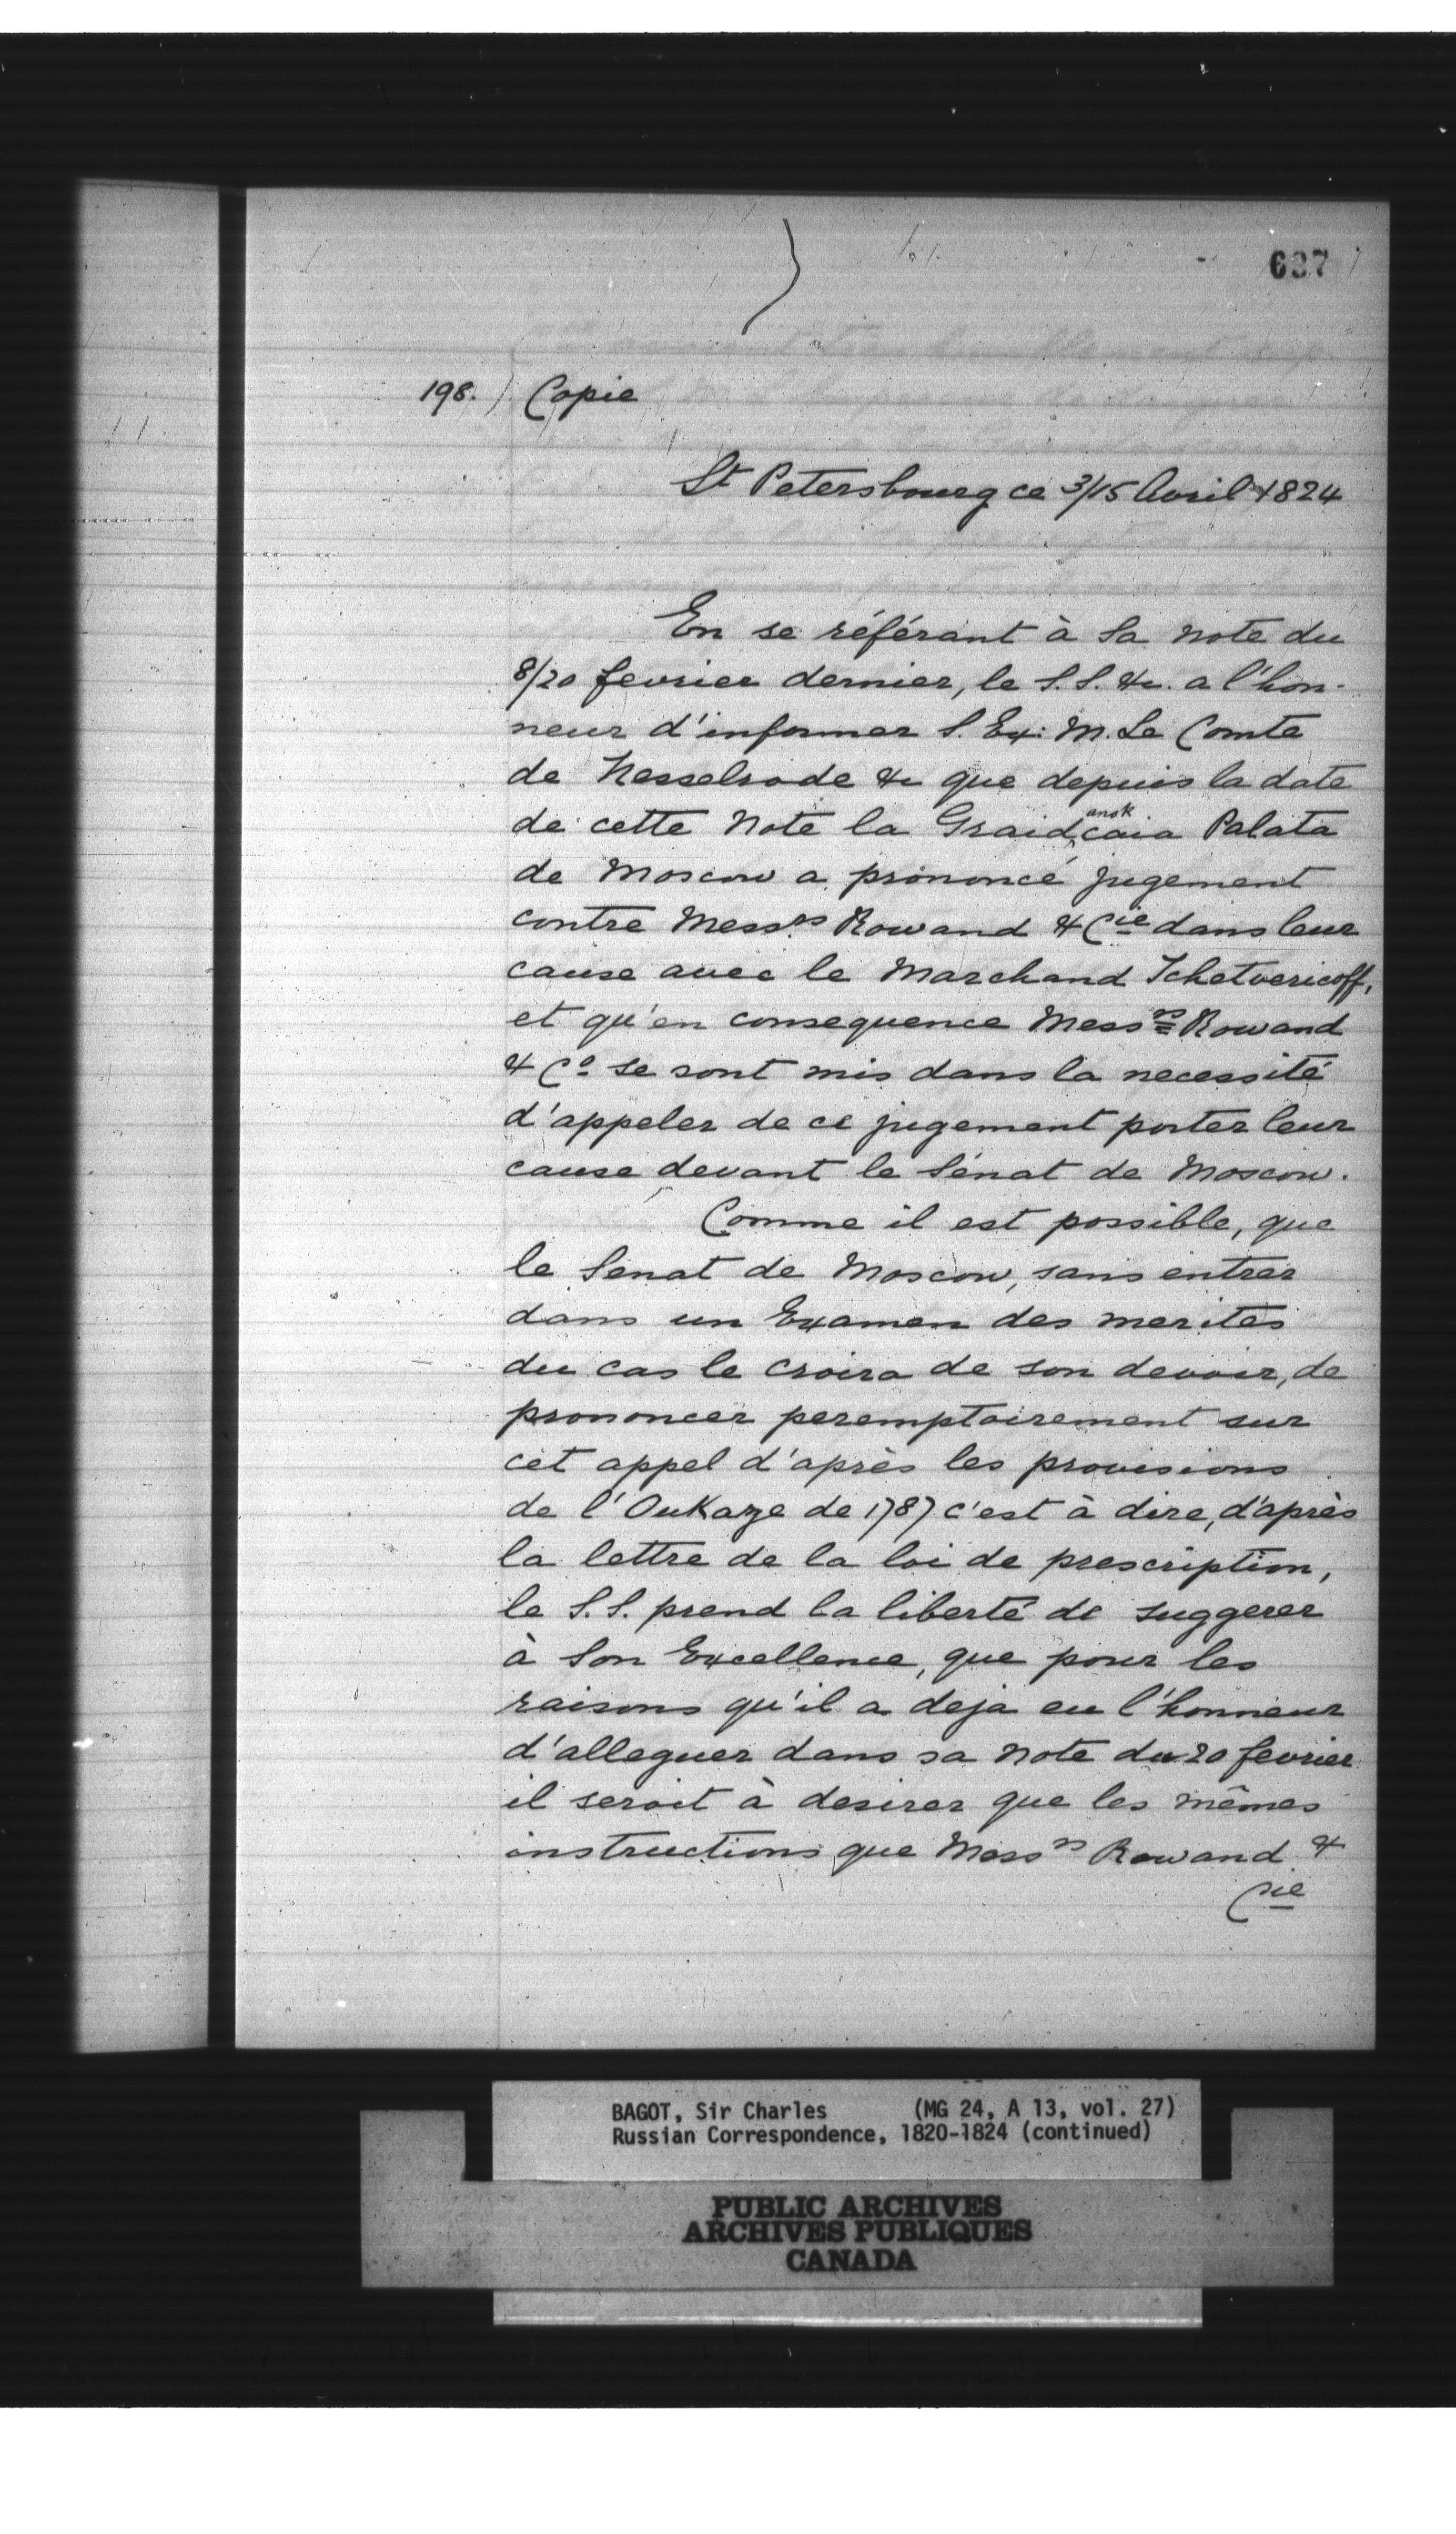 637
198.) Copie
St Petersbourg ce 3/15 Avril 1824
En se référant à Sa note du
8/20 fevrier dernier, le S.S. &c. a l'hon-
neur d'informer S. Ex: M. Le Comte
de Nesselrode &c que depuis la date
de cette Note la Graidanskcaia Palata
de Moscow a prononcé jugement
contre Messrs Rowand & Cie dans leur
cause avec le Marchand Tchetvericoff,
et qu'en consequence Messrs Rowand
& Co se sont mis dans la necessité
d'appeler de ce jugement porter leur
cause devant le Sénat de Moscow.
Comme il est possible, que
le Senat de Moscow, sans entrer
dans un Examen des merites
du cas le croira de son devoir, de
prononcer peremptoirement sur
cet appel d'après les provisions
de l'OuKaze de 1787 c'est à dire, d'après
la lettre de la loi de prescription,
le S.S. prend la liberté de suggerer
à Son Excellence, que pour les
raisons qu'il a deja eu l'honneur
d'alleguer dans sa note du 20 fevrier
il seroit à desirer que les mêmes
instructions que Messrs Rowand &
Cie
BAGOT, Sir Charles (MG 24, A 13, vol. 27)
Russian Correspondence, 1820-1824 (continued)
PUBLIC ARCHIVES
ARCHIVES PUBLIQUES
CANADA